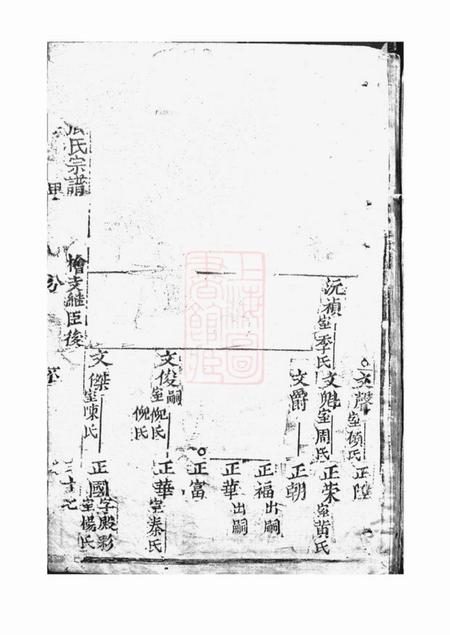 氏宗譜
檜支繼臣後
沅禎室季氏
文聲室顧氏
正陞
文魁室周氏
正朱室黃氏
文爵
正朝
正福出嗣
正華出嗣
正富
文俊嗣
室倪氏
倪氏
正華室秦氏
文傑室陳氏
正國字殿彩
室楊氏
上海圖
書館藏